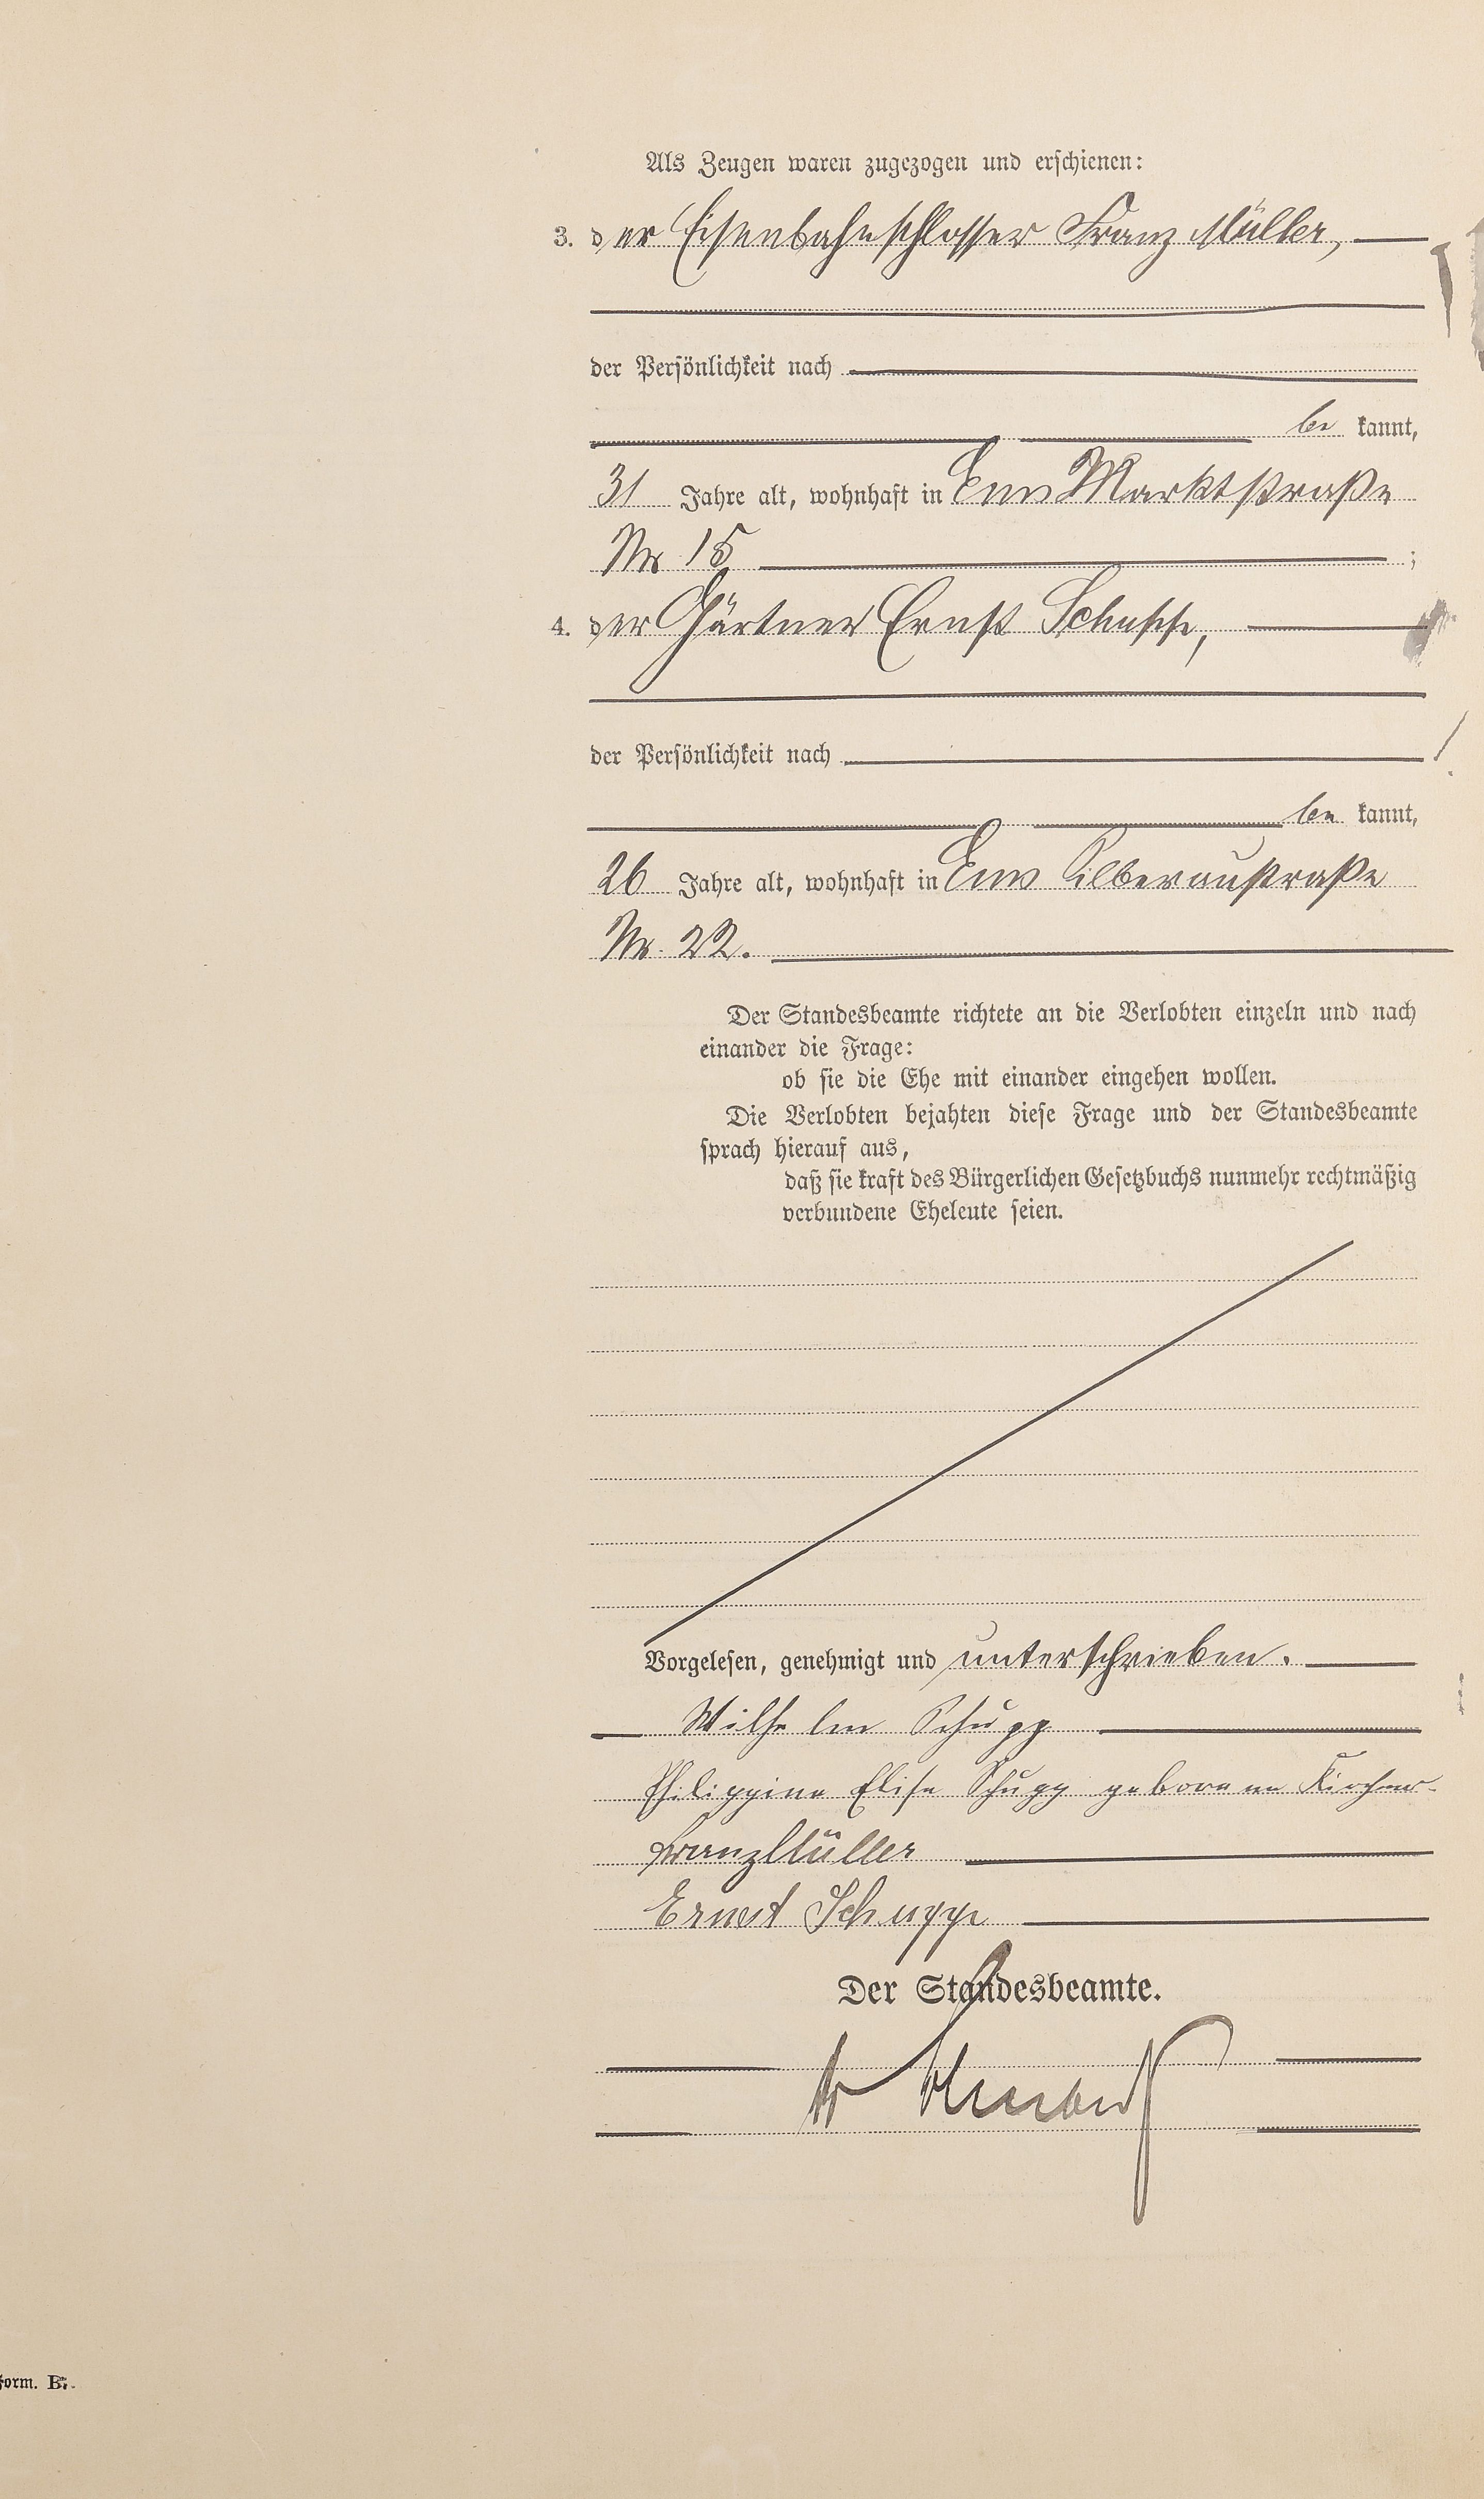 Als Zeugen waren zugezogen und erschienen:
3. der Eisenbahnschlosser Franz Müller,
der Persönlichkeit nach
be kannt,
31 Jahre alt, wohnhaft in Ems Marktstraße
Nr 15 ;
4. der Gärtner Ernst Schupp,
der Persönlichkeit nach
be kannt,
26 Jahre alt, wohnhaft in Ems Silberaustraße
Nr. 22.
Der Standesbeamte richtete an die Verlobten einzeln und nach
einander die Frage:
ob sie die Ehe mit einander eingehen wollen.
Die Verlobten bejahten diese Frage und der Standesbeamte
sprach hierauf aus,
daß sie kraft des Bürgerlichen Gesetzbuchs nunmehr rechtmäßig
verbundene Eheleute seien.
Vorgelesen, genehmigt und unterschrieben.
Wilhelm Schupp
Philippine Elise Schupp geborene Kirchner
Franz Müller
Ernst Schupp
Der Standesbeamte.
Form. B.